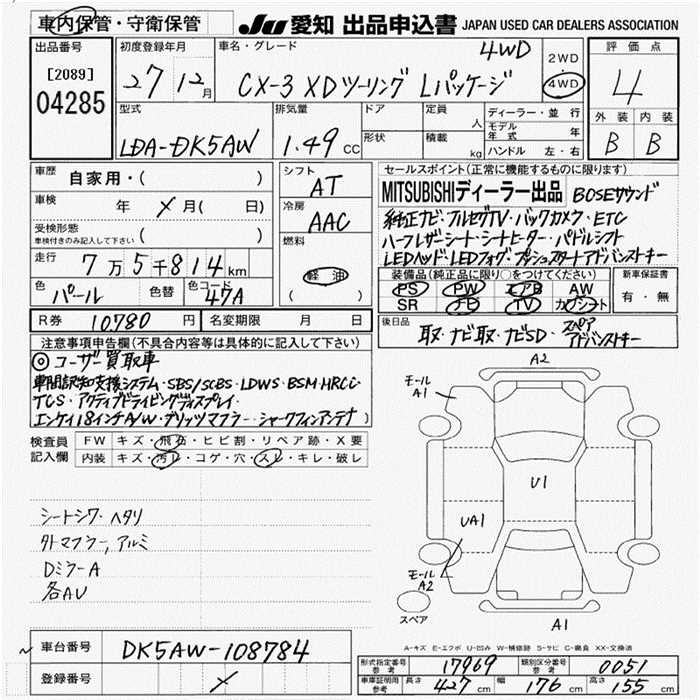 車内保管・守衛保管
JU 愛知 出品申込書 JAPAN USED CAR DEALERS ASSOCIATION
出品番号
[2089]
04285
初度登録年月
27 12月
車名・グレード
4WD
CX-3 XDツーリング Lパッケージ
2WD
4WD
評価点
4
外装 内装
B B
型式
LDA-DK5AW
排気量
1.49 CC
ドア
形状
定員 人
積載 kg
ディーラー・並行
モデル年式 年
ハンドル 左・右
車歴 自家用・( )
車検 年 月( 日)
受検形態
車検付きのみ記入して下さい ( )
走行 7万5千814km
色 パール 色替 色コード 47A
シフト AT
冷房 AAC
燃料
軽油
( )
セールスポイント(正常に機能するものに限ります)
MITSUBISHIディーラー出品 BOSEサウンド
純正ナビ・フルセグTV・バックカメラ・ETC
ハーフレザーシート・シートヒーター・パドルシフト
LEDヘッド・LEDフォグ・プッシュスタートアドバンストキー
装備品(純正品に限り○をつけてください)
PS PW エアB AW
SR ナビ TV カワシート
新車保証書
有・無
R券 10780 円 名変期限 月 日
後日品 取・ナビ取・ナビSD・スペアアドバンストキー
注意事項申告欄(不具合内容等は具体的に記入して下さい)
◎ユーザー買取車
車間認知支援システム・SBS/SCBS・LDWS・BSM・HRCC・
TCS・アクティブドライビングディスプレイ・
エンケイ18インチA/W・ブリッツマフラー・シャークフィンアンテナ
検査員記入欄
FW キズ・飛石・ヒビ割・リペア跡・X要
内装 キズ・汚れ・コゲ・穴・スレ・キレ・破レ
シートシワ・ヘタリ
外マフラー,アルミ
DミラーA
各AU
A2
モールA1
U1
UA1
モールA2
スペア
A1
A-キズ E-エクボ U-凹み W-補修跡 S-サビ C-腐食 XX-交換済
車台番号 DK5AW-108784
登録番号
形式指定番号 参考 17969 類別区分番号 参考 0051
車庫証明用 参考 長さ 427 cm 幅 176 cm 高さ 155 cm